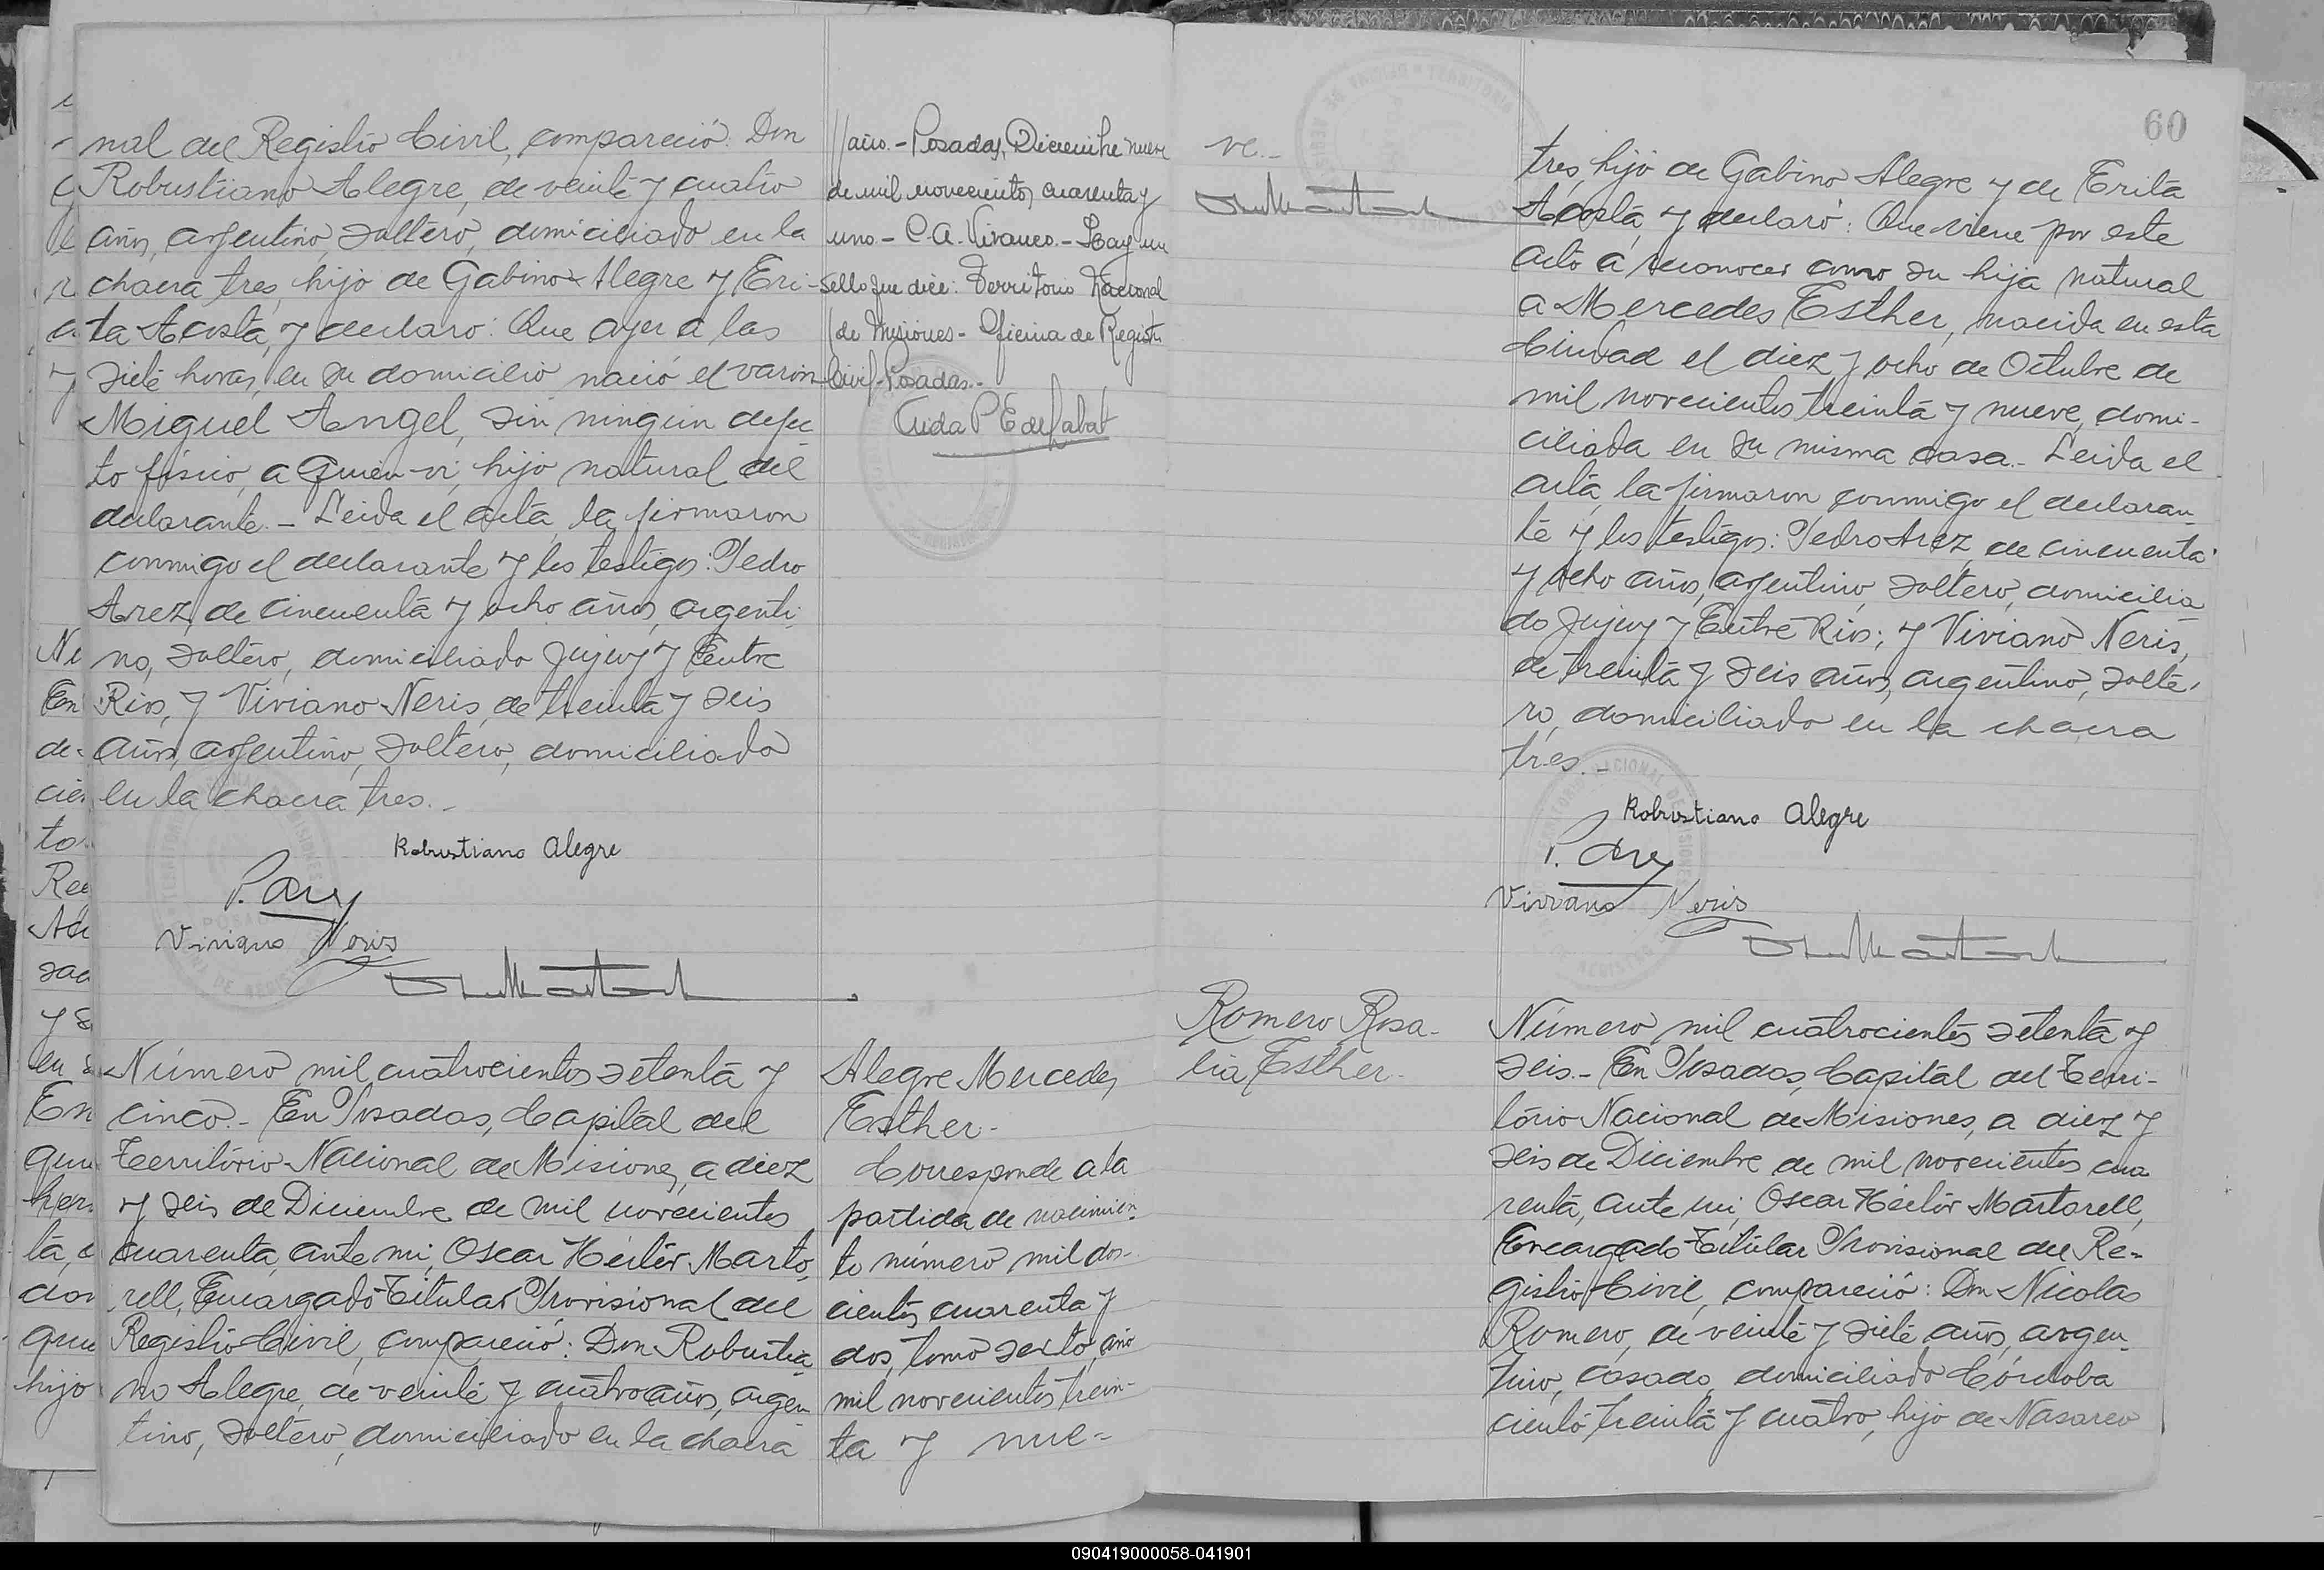 nal del Registro Civil, compareció: Don
Robustiano Alegre, de veinte y cuatro
años, argentino, soltero, domiciliado en la
chacra tres, hijo de Gabino Alegre y Eri-
ta Acosta, y declaró: Que ayer a las
siete horas, en su domicilio nació el varon
Miguel Angel, sin ningún defec
to físico, a quien vi, hijo natural del
declarante.- Leida el acta, la firmaron
conmigo el declarante y los testigos: Pedro
Arez, de cincuenta y ocho años, argenti-
no, soltero, domiciliado Jujuy y Entre
Rios, y Viviano Neris, de treinta y seis
años, argentino, soltero, domiciliado
en la chacra tres.-
Robustiano Alegre
P. Arez
Viviano Neris
Número mil cuatrocientos setenta y
cinco.- En Posadas, Capital del
Territorio Nacional de Misiones, a diez
y seis de Diciembre de mil novecientos
cuarenta, ante mi, Oscar Héctor Marto-
rell, Encargado Titular Provisional del
Registro Civil, compareció: Don Robustia-
no Alegre, de veinte y cuatro años, argen-
tino, soltero, domiciliado en la chacra
//año.- Posadas, Diciembre nueve
de mil novecientos cuarenta y
uno.- C.A. Vivanco.- Hay un
sello que dice: Territorio Nacional
de Misiones- Oficina de Registro
Civil-Posadas.-
Alegre Mercedes
Esther.-
Corresponde a la
partida de nacimien-
to número mil dos-
cientos cuarenta y
dos, tomo sexto, año
mil novecientos trein-
ta y nue-
ve.-
60
tres, hijo de Gabino Alegre y de Erita
Acosta, y declaró: Que viene por este
acto á reconocer como su hija natural
a Mercedes Esther, nacida en esta
Ciudad el diez y ocho de Octubre de
mil novecientos treinta y nueve, domi-
ciliada en su misma casa.- Leida el
acta, la firmaron conmigo el declaran-
te y los testigos: Pedro Arez, de cincuenta
y ocho años, argentino, soltero, domicilia
do Jujuy y Entre Rios; y Viviano Neris,
de treinta y seis años, argentino, solte-
ro, domiciliado en la chacra
tres.-
Robustiano Alegre
P. Arez
Viviano Neris
Romero Rosa-
lia Esther.-
Número mil cuatrocientos setenta y
seis.- En Posadas, Capital del Terri-
torio Nacional de Misiones, a diez y
seis de Diciembre de mil novecientos cua
renta, ante mi, Oscar Héctor Martorell,
Encargado Titular Provisional del Re-
gistro Civil, compareció: Don Nicolas
Romero, de veinte y siete años, argen-
tino, casado, domiciliado Córdoba
ciento treinta y cuatro, hijo de Nasareo
090419000058-041901